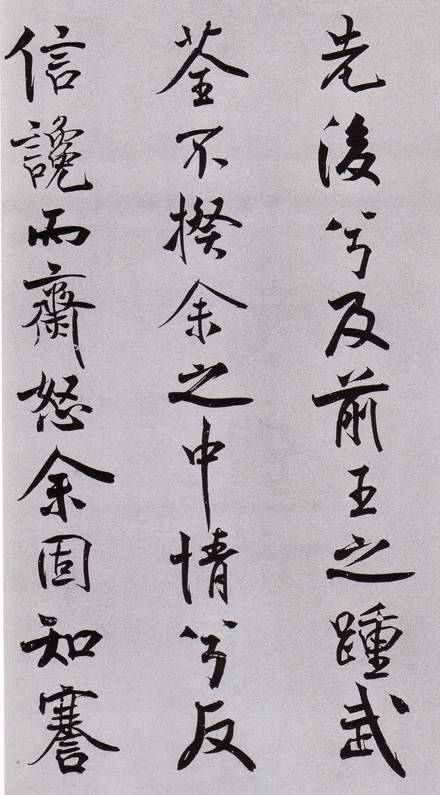 先後兮及前王之踵武
荃不揆余之中情兮反
信讒而齋怒余固知謇